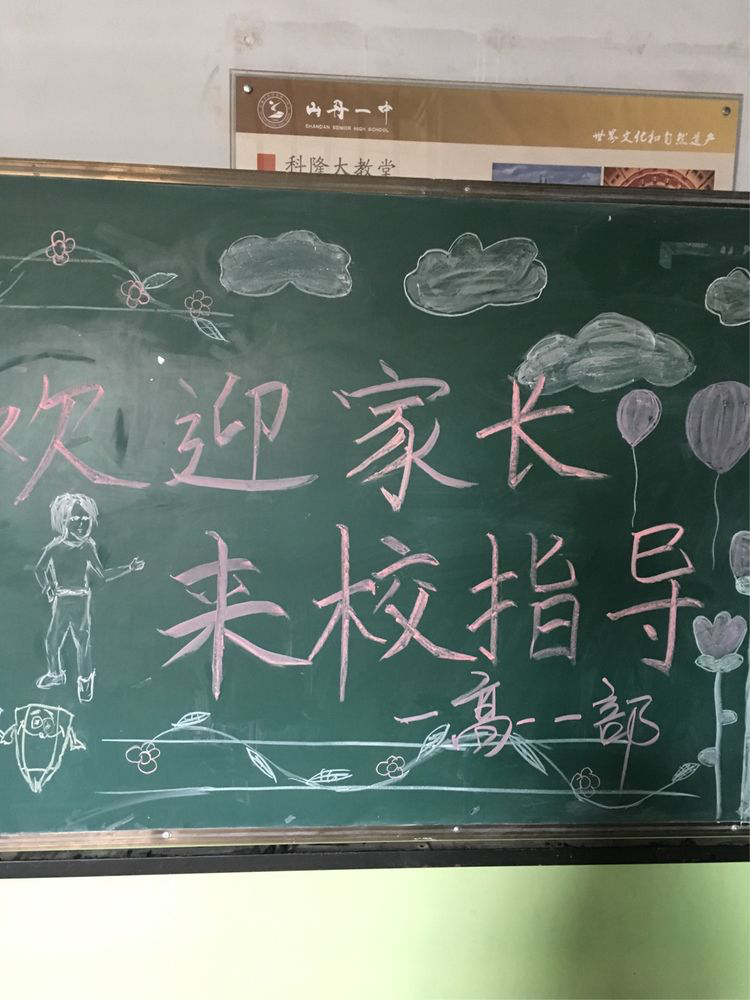 山丹一中
SHANDAN SENIOR HIGH SCHOOL
世界文化和自然遗产
科隆大教堂
欢迎家长
来校指导
一高一一部